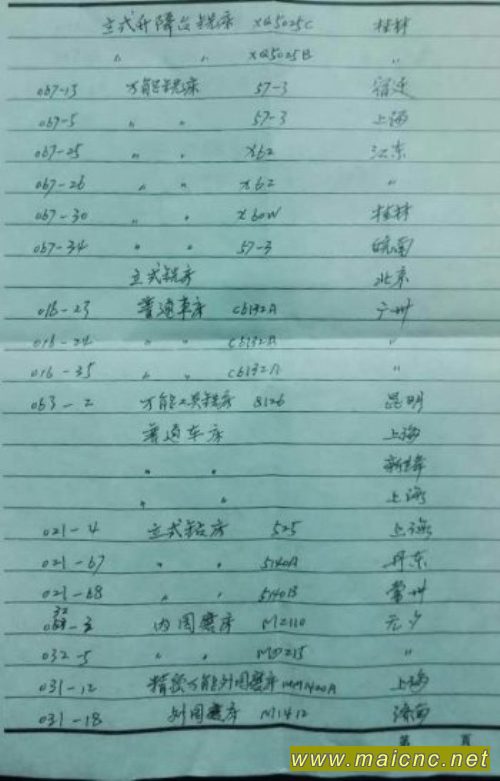 立式升降台铣床 XQ5025C 桂林
〃 〃 XQ5025B 〃
067-13 万能铣床 57-3 宿迁
067-5 〃 〃 57-3 上海
067-25 〃 〃 X62 江东
067-26 〃 〃 X62 〃
067-30 〃 〃 X60W 桂林
067-34 〃 〃 57-3 皖南
立式铣床 北京
016-23 普通车床 C6132A 广州
016-24 〃 〃 C6132A 〃
016-35 〃 〃 C6132A 〃
063-2 万能工具铣床 8126 昆明
普通车床 上海
〃 〃
〃 〃 上海
021-4 立式钻床 525 上海
021-67 〃 〃 5140A 丹东
021-68 〃 〃 5140B 常州
032-3 内圆磨床 M2110 无夕
032-5 〃 〃 MD215 〃
031-12 精密万能外圆磨床 MM1420A 上海
031-18 外圆磨床 M1412 济南
第 页
www.maicnc.net